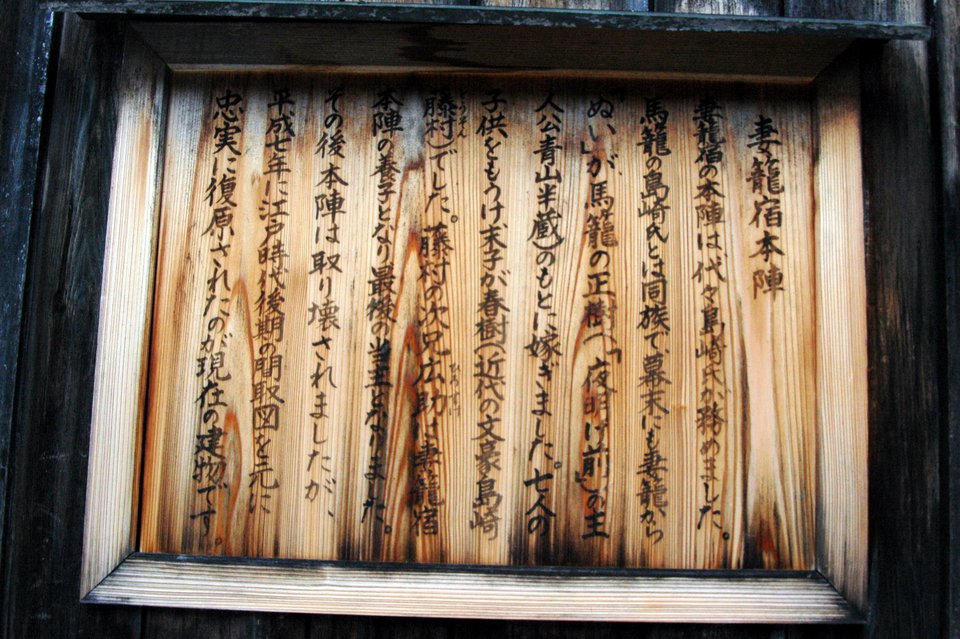 妻籠宿本陣
妻籠宿の本陣は代々島崎氏が務めました。
馬籠の島崎氏とは同族で幕末にも妻籠から
「ぬい」が馬籠の正樹（「夜明け前」の主
人公青山半蔵）のもとに嫁ぎました。七人の
子供をもうけ、末子が春樹（近代の文豪島崎
藤村）でした。藤村の次兄広助は妻籠宿
本陣の養子となり最後の当主となりました。
その後本陣は取り壊されましたが、
平成七年に江戸時代後期の間取図を元に
忠実に復原されたのが現在の建物です。